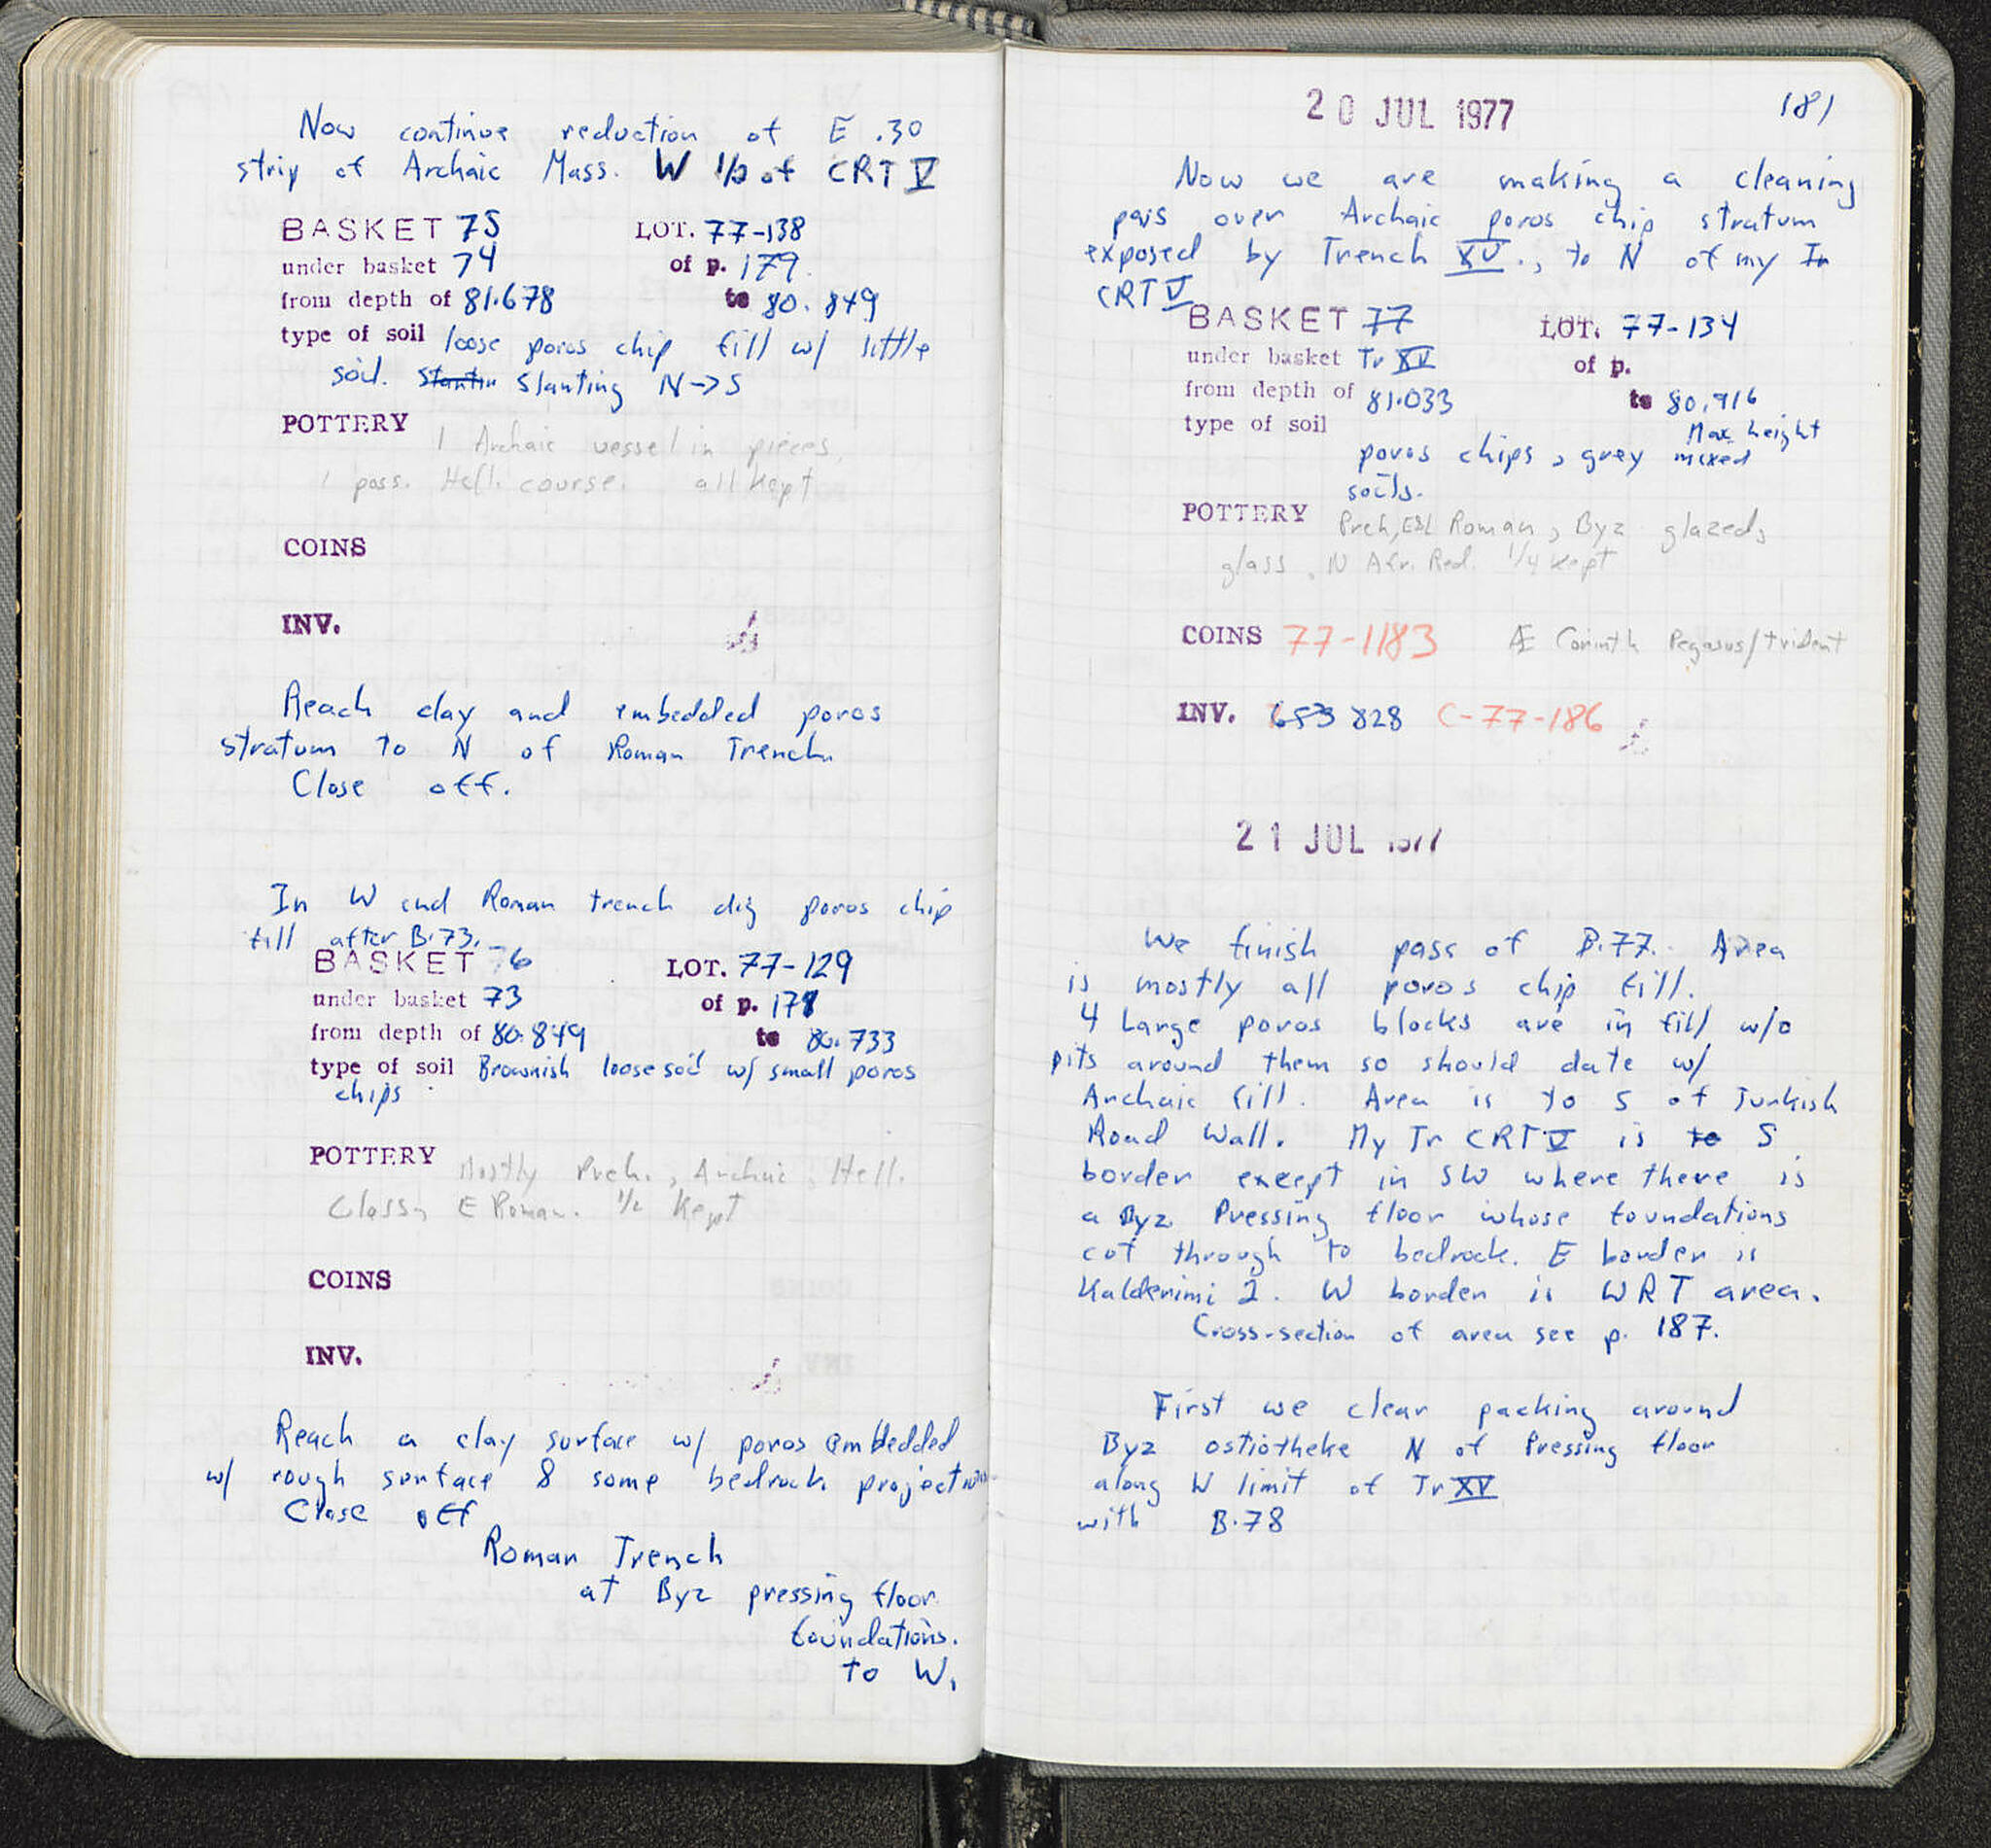 Now continue reduction of E .30
strip of Archaic Mass. W 1/2 of CRT V
BASKET 75 LOT. 77-138
under basket 74 of p. 179.
from depth of 81.678 to 80.849
type of soil loose poros chip fill w/ little
soil. slanting N->S
POTTERY 1 Archaic vessel in pieces,
1 poss. Hell. course. all kept
COINS
INV.
Reach clay and embedded poros
stratum to N of Roman Trench.
Close off.
In W end Roman trench dig poros chip
fill after B.73.
BASKET 76 LOT. 77-129
under basket 73 of p. 178
from depth of 80.849 to 80.733
type of soil Brownish loose soil w/ small poros
chips.
POTTERY Mostly Preh., Archaic, Hell.
Class, E Roman. 1/2 Kept
COINS
INV.
Reach a clay surface w/ poros embedded
w/ rough surface & some bedrock projections
Close off
Roman Trench
at Byz pressing floor
foundations.
to W.
20 JUL 1977 181
Now we are making a cleaning
pass over Archaic poros chip stratum
exposed by Trench XV., to N of my
CRT V
BASKET 77 LOT. 77-134
under basket Tr XV of p.
from depth of 81.033 to 80.916
type of soil Max height
poros chips, grey mixed
soils.
POTTERY Preh, E&L Roman, Byz glazed,
glass, N Afr. Red. 1/4 kept
COINS 77-1183 Æ Corinth Pegasus/trident
INV. 828 C-77-186
21 JUL 1977
We finish pass of B.77. Area
is mostly all poros chip fill.
4 Large poros blocks are in fill w/o
pits around them so should date w/
Archaic fill. Area is to S of Turkish
Road Wall. My Tr CRT V is S
border except in SW where there is
a Byz Pressing floor whose foundations
cut through to bedrock. E border is
Kalderimi 2. W border is WRT area.
Cross-section of area see p. 187.
First we clear packing around
Byz ostiotheke N of Pressing floor
along W limit of Tr XV
with B.78